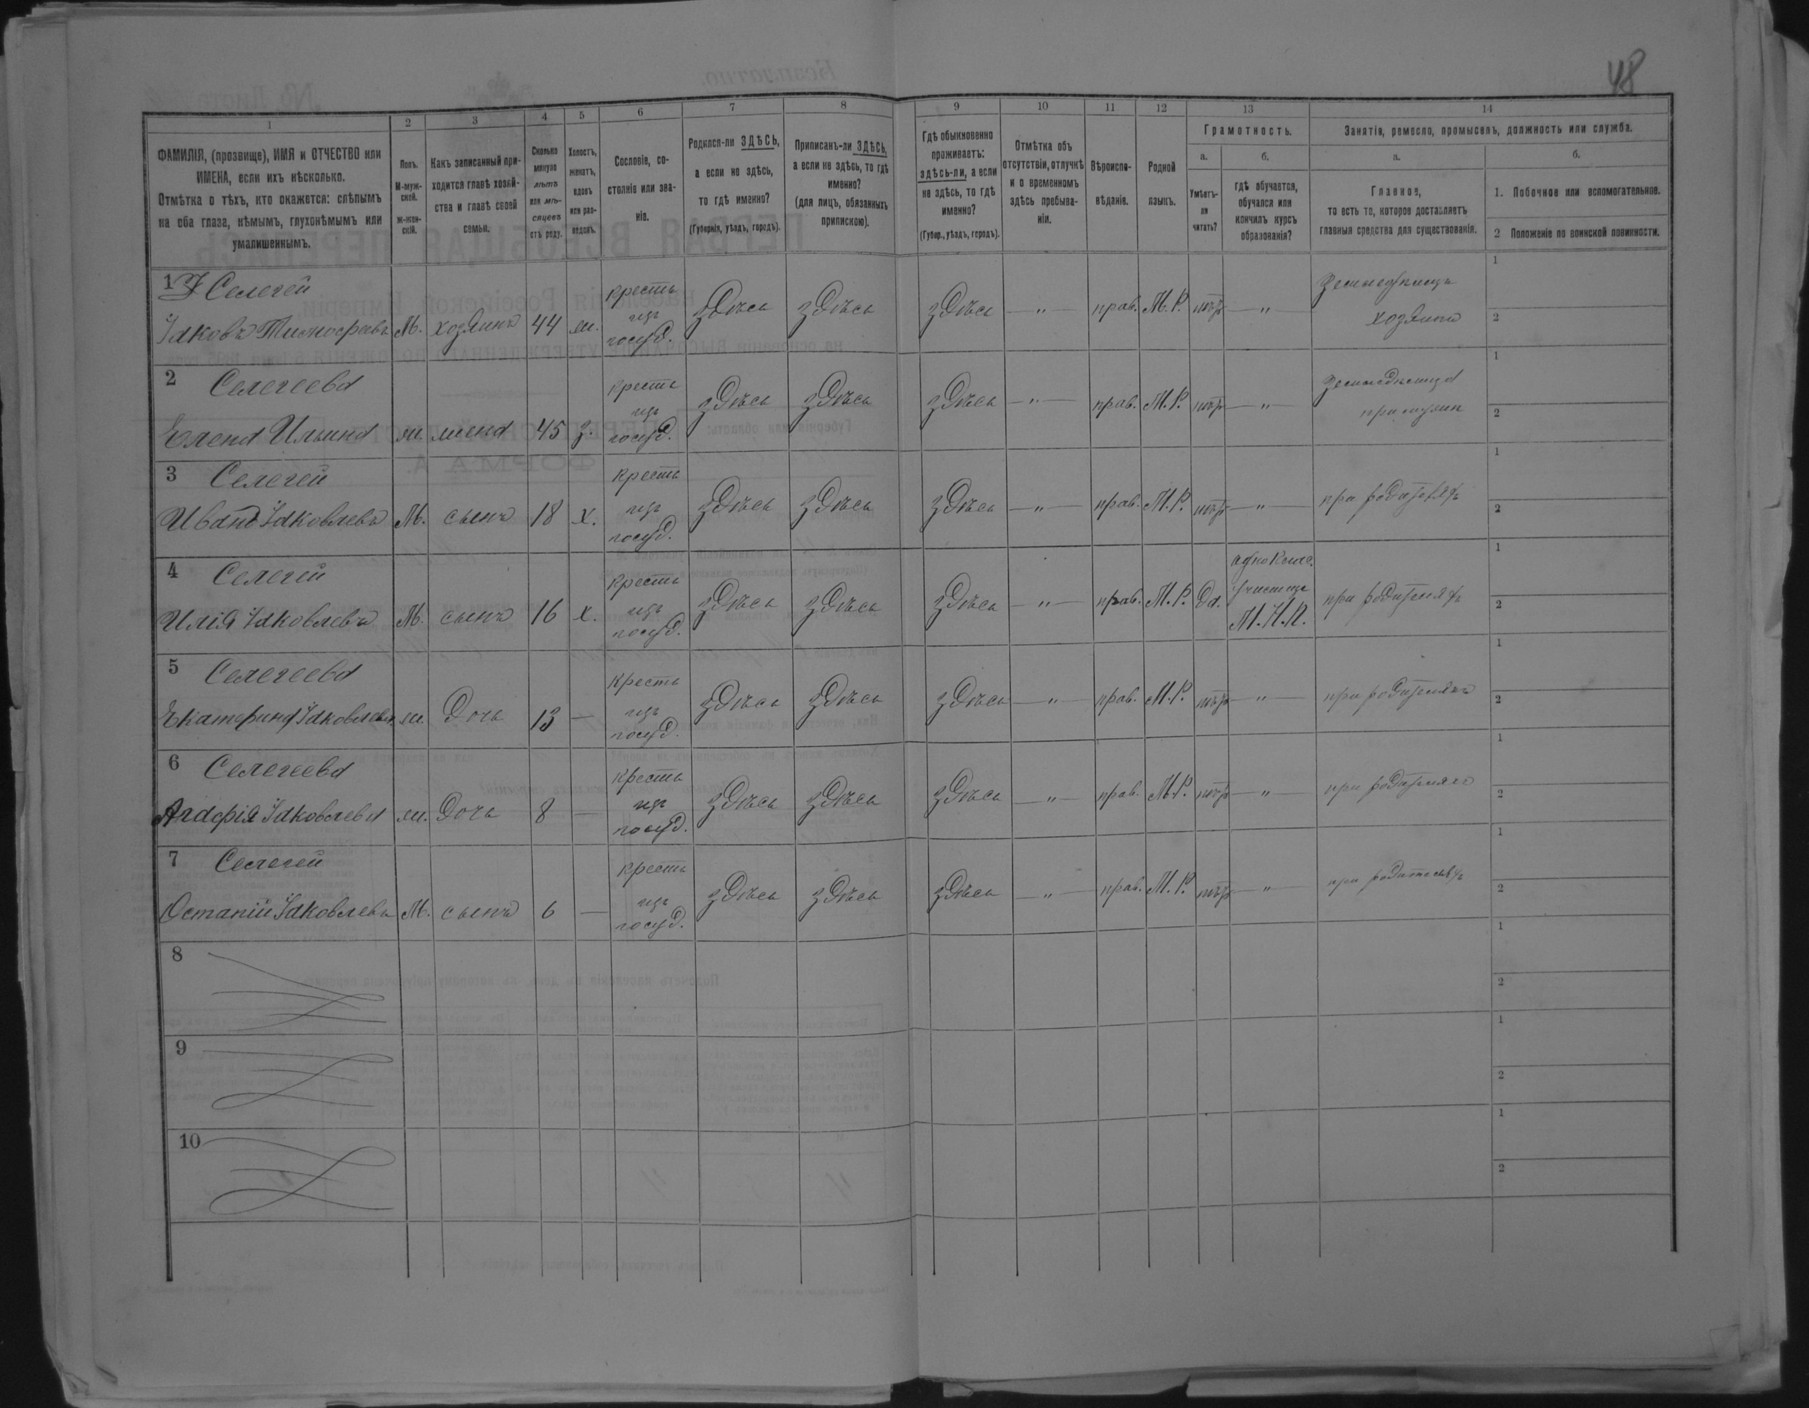 48
1 2 3 4 5 6 7 8 9 10 11 12 13 14
ФАМИЛІЯ, (прозвище), ИМЯ и ОТЧЕСТВО или
ИМЕНА, если ихъ нѣсколько.
Отмѣтка о тѣхъ, кто окажется: слѣпымъ
на оба глаза, нѣмымъ, глухонѣмымъ или
умалишеннымъ.
Полъ.
М-муж-
ской.
Ж-жен-
скій.
Какъ записанный при-
ходится главѣ хозяй-
ства и главѣ своей
семьи.
Сколько
минуло
лѣтъ
или мѣ-
сяцевъ
отъ роду.
Холостъ,
женатъ,
вдовъ
или раз-
веденъ.
Сословіе, со-
стояніе или зва-
ніе.
Родился-ли ЗДѢСЬ,
а если не здѣсь,
то гдѣ именно?
(Губернія, уѣздъ, городъ).
Приписанъ-ли ЗДѢСЬ,
а если не здѣсь, то гдѣ
именно?
(для лицъ, обязанныхъ
припискою).
Гдѣ обыкновенно
проживаетъ:
здѣсь-ли, а если
не здѣсь, то гдѣ
именно?
(Губер., уѣздъ, городъ).
Отмѣтка объ
отсутствіи, отлучкѣ
и о временномъ
здѣсь пребыва-
ніи.
Вѣроиспо-
вѣданіе.
Родной
языкъ.
Грамотность.
а.
Умѣетъ-
ли
читать?
б.
гдѣ обучается,
обучался или
кончилъ курсъ
образованія?
Занятія, ремесло, промыселъ, должность или служба.
а.
Главное,
то есть то, которое доставляетъ
главныя средства для существованія.
б.
1. Побочное или вспомогательное.
2 Положеніе по воинской повинности.
1 Селегей крестъ земледѣлецъ 1
Яковъ Тимофеевъ М. хозяинъ 44 ж. изъ здѣсь здѣсь здѣсь — " — прав. М.Р. нѣтъ — " — хозяинъ 2
госуд.
2 Селегеева крестъ 1
Елена Ильина ж. жена 45 з. изъ здѣсь здѣсь здѣсь — " — прав. М.Р. нѣтъ — " — при 2
госуд.
3 Селегей крестъ 1
Иванъ Яковлевъ М. сынъ 18 х. изъ здѣсь здѣсь здѣсь — " — прав. М.Р. нѣтъ — " — при родителяхъ 2
госуд.
4 Селегей крестъ 1
Илія Яковлевъ М. сынъ 16 х. изъ здѣсь здѣсь здѣсь — " — прав. М.Р. Да. училище при родителяхъ 2
госуд. М.Н.П.
5 Селегеева крестъ 1
Екатерина Яковлева ж. дочь 13 — изъ здѣсь здѣсь здѣсь — " — прав. М.Р. нѣтъ — " — при родителяхъ 2
госуд.
6 Селегеева крестъ 1
Агафія Яковлева ж. дочь 8 — изъ здѣсь здѣсь здѣсь — " — прав. М.Р. нѣтъ — " — при родителяхъ 2
госуд.
7 Селегей крестъ 1
Остапій Яковлевъ М. сынъ 6 — изъ здѣсь здѣсь здѣсь — " — прав. М.Р. нѣтъ — " — при родителяхъ 2
госуд.
8 1
2
9 1
2
10 1
2